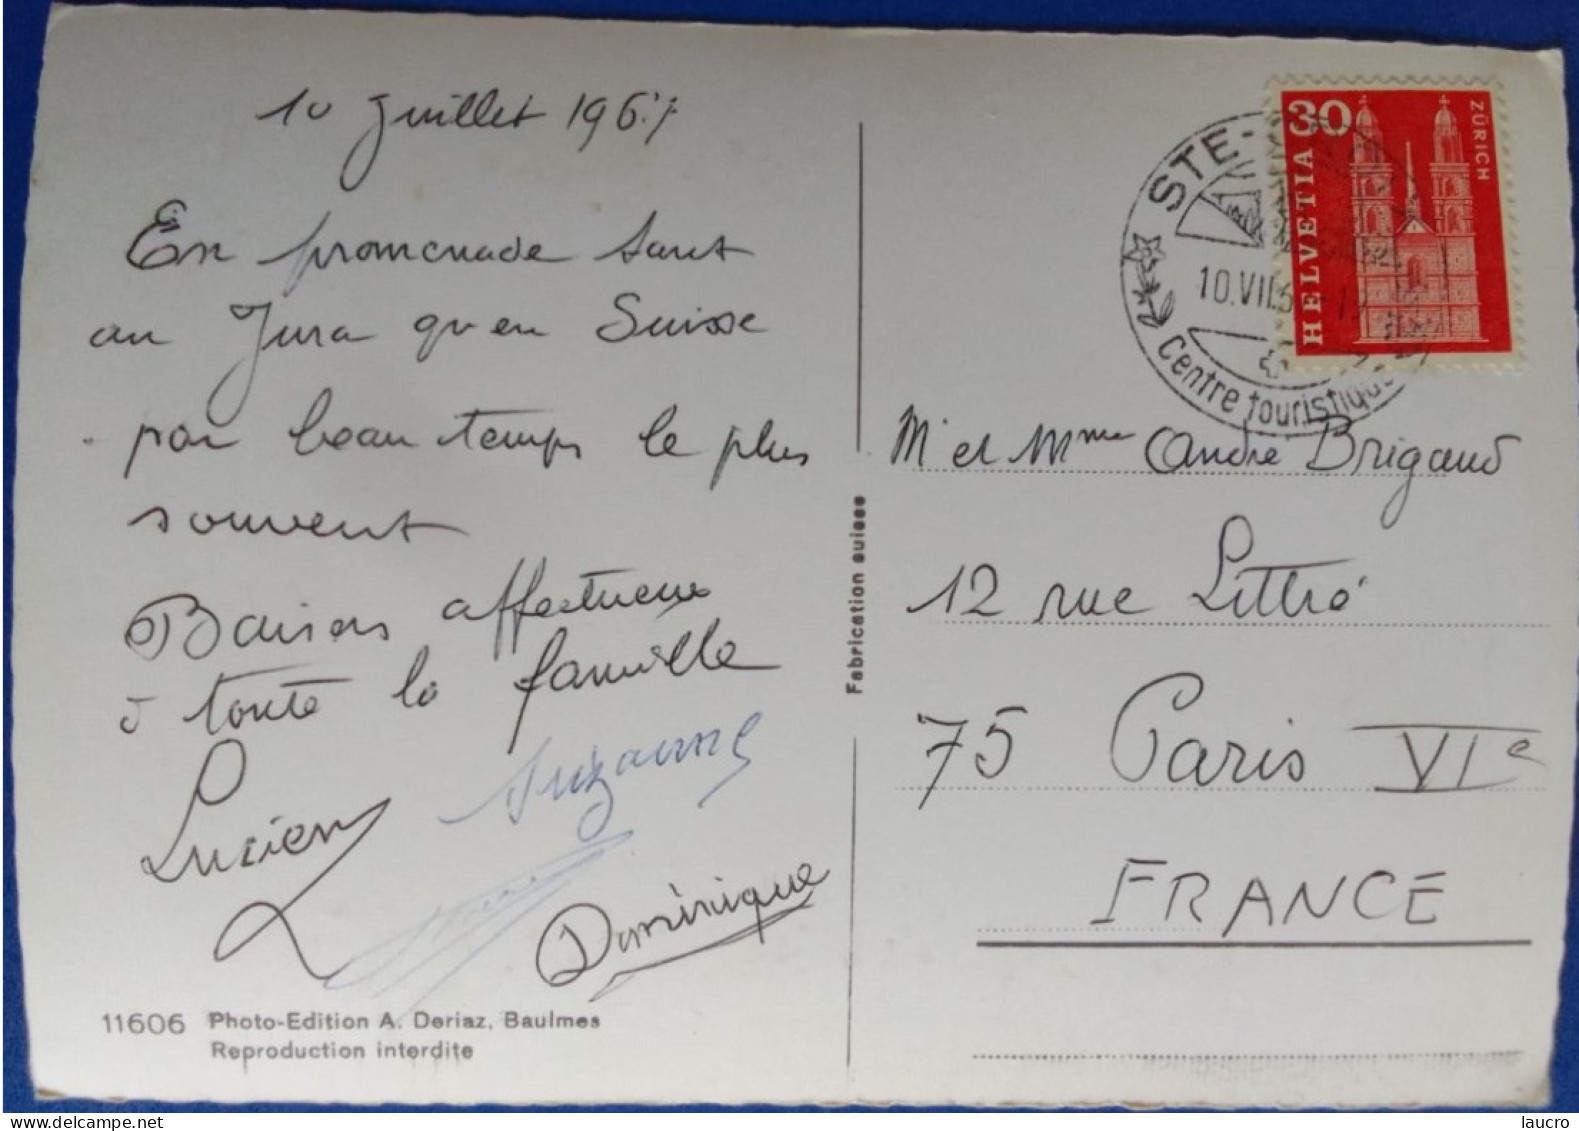 10 Juillet 1967
En promenade tant
au Jura qu'en Suisse
par beau temps le plus
souvent
Baisers affectueux
à toute la famille
Lucien
Suzanne
Dominique
11606 Photo-Edition A. Deriaz, Baulmes
Reproduction interdite
Fabrication suisse
STE-
10.VII.6
Centre touristique
30
HELVETIA
ZÜRICH
Mr et Mme André Brigaud
12 rue Littré
75 Paris VIe
FRANCE
laucro